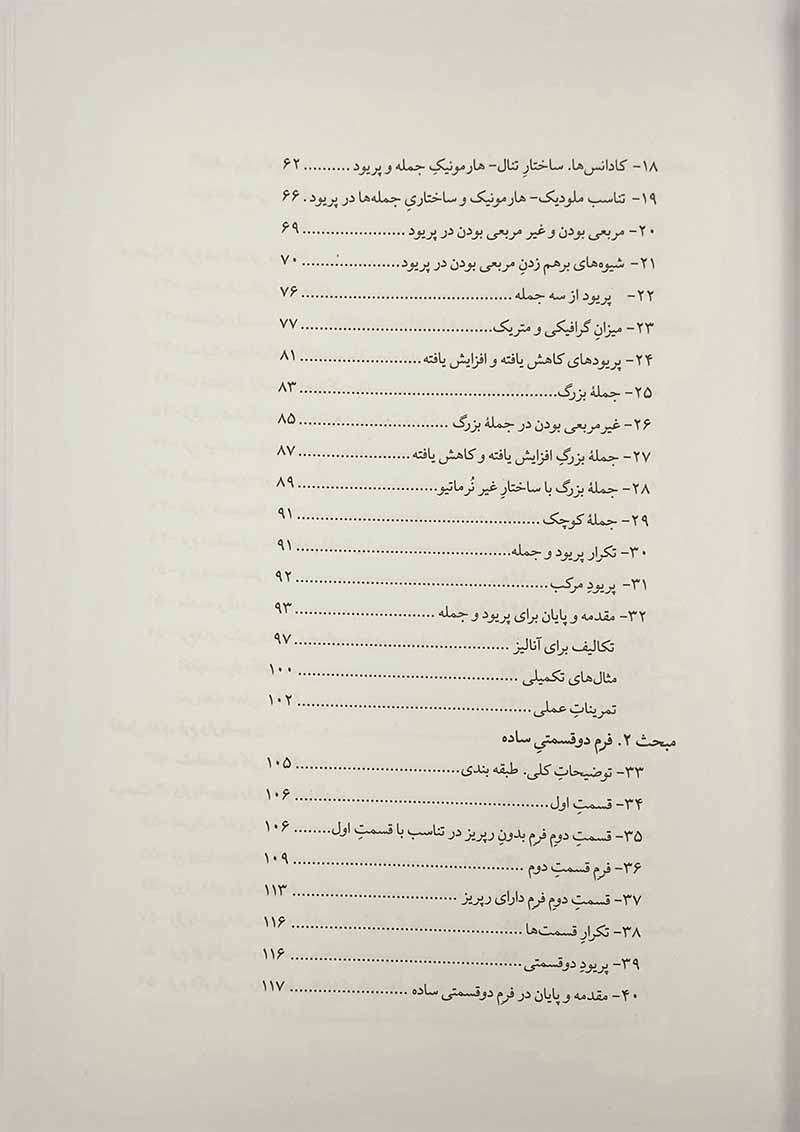 ۱۸- کادانس‌ها. ساختارِ تنال- هارمونیکِ جمله و پریود .......... ۶۲
۱۹- تناسب ملودیک- هارمونیک و ساختاریِ جمله‌ها در پریود . ۶۶
۲۰- مربعی بودن و غیر مربعی بودن در پریود ...................... ۶۹
۲۱- شیوه‌های برهم زدنِ مربعی بودن در پریود...................... ۷۰
۲۲- پریود از سه جمله ............................................. ۷۶
۲۳- میزانِ گرافیکی و متریک......................................... ۷۷
۲۴- پریودهای کاهش یافته و افزایش یافته.......................... ۸۱
۲۵- جملهٔ بزرگ...................................................... ۸۳
۲۶- غیرمربعی بودن در جملهٔ بزرگ ................................ ۸۵
۲۷- جملهٔ بزرگِ افزایش یافته و کاهش یافته........................ ۸۷
۲۸- جملهٔ بزرگ با ساختارِ غیر نُرماتیو.............................. ۸۹
۲۹- جملهٔ کوچک .................................................... ۹۱
۳۰- تکرار پریود و جمله.............................................. ۹۱
۳۱- پریودِ مرکب ..................................................... ۹۲
۳۲- مقدمه و پایان برای پریود و جمله .............................. ۹۳
تکالیف برای آنالیز .............................................. ۹۷
مثال‌های تکمیلی ............................................... ۱۰۰
تمریناتِ عملی.................................................. ۱۰۲
مبحث ۲. فرمِ دوقسمتیِ ساده
۳۳- توضیحاتِ کلی. طبقه بندی................................... ۱۰۵
۳۴- قسمتِ اول...................................................... ۱۰۶
۳۵- قسمتِ دومِ فرمِ بدونِ رپریز در تناسب با قسمتِ اول........ ۱۰۶
۳۶- فرمِ قسمتِ دوم ................................................ ۱۰۹
۳۷- قسمتِ دومِ فرمِ دارای رپریز ................................... ۱۱۳
۳۸- تکرارِ قسمت‌ها ................................................. ۱۱۶
۳۹- پریودِ دوقسمتی................................................. ۱۱۶
۴۰- مقدمه و پایان در فرمِ دوقسمتی ساده ......................... ۱۱۷